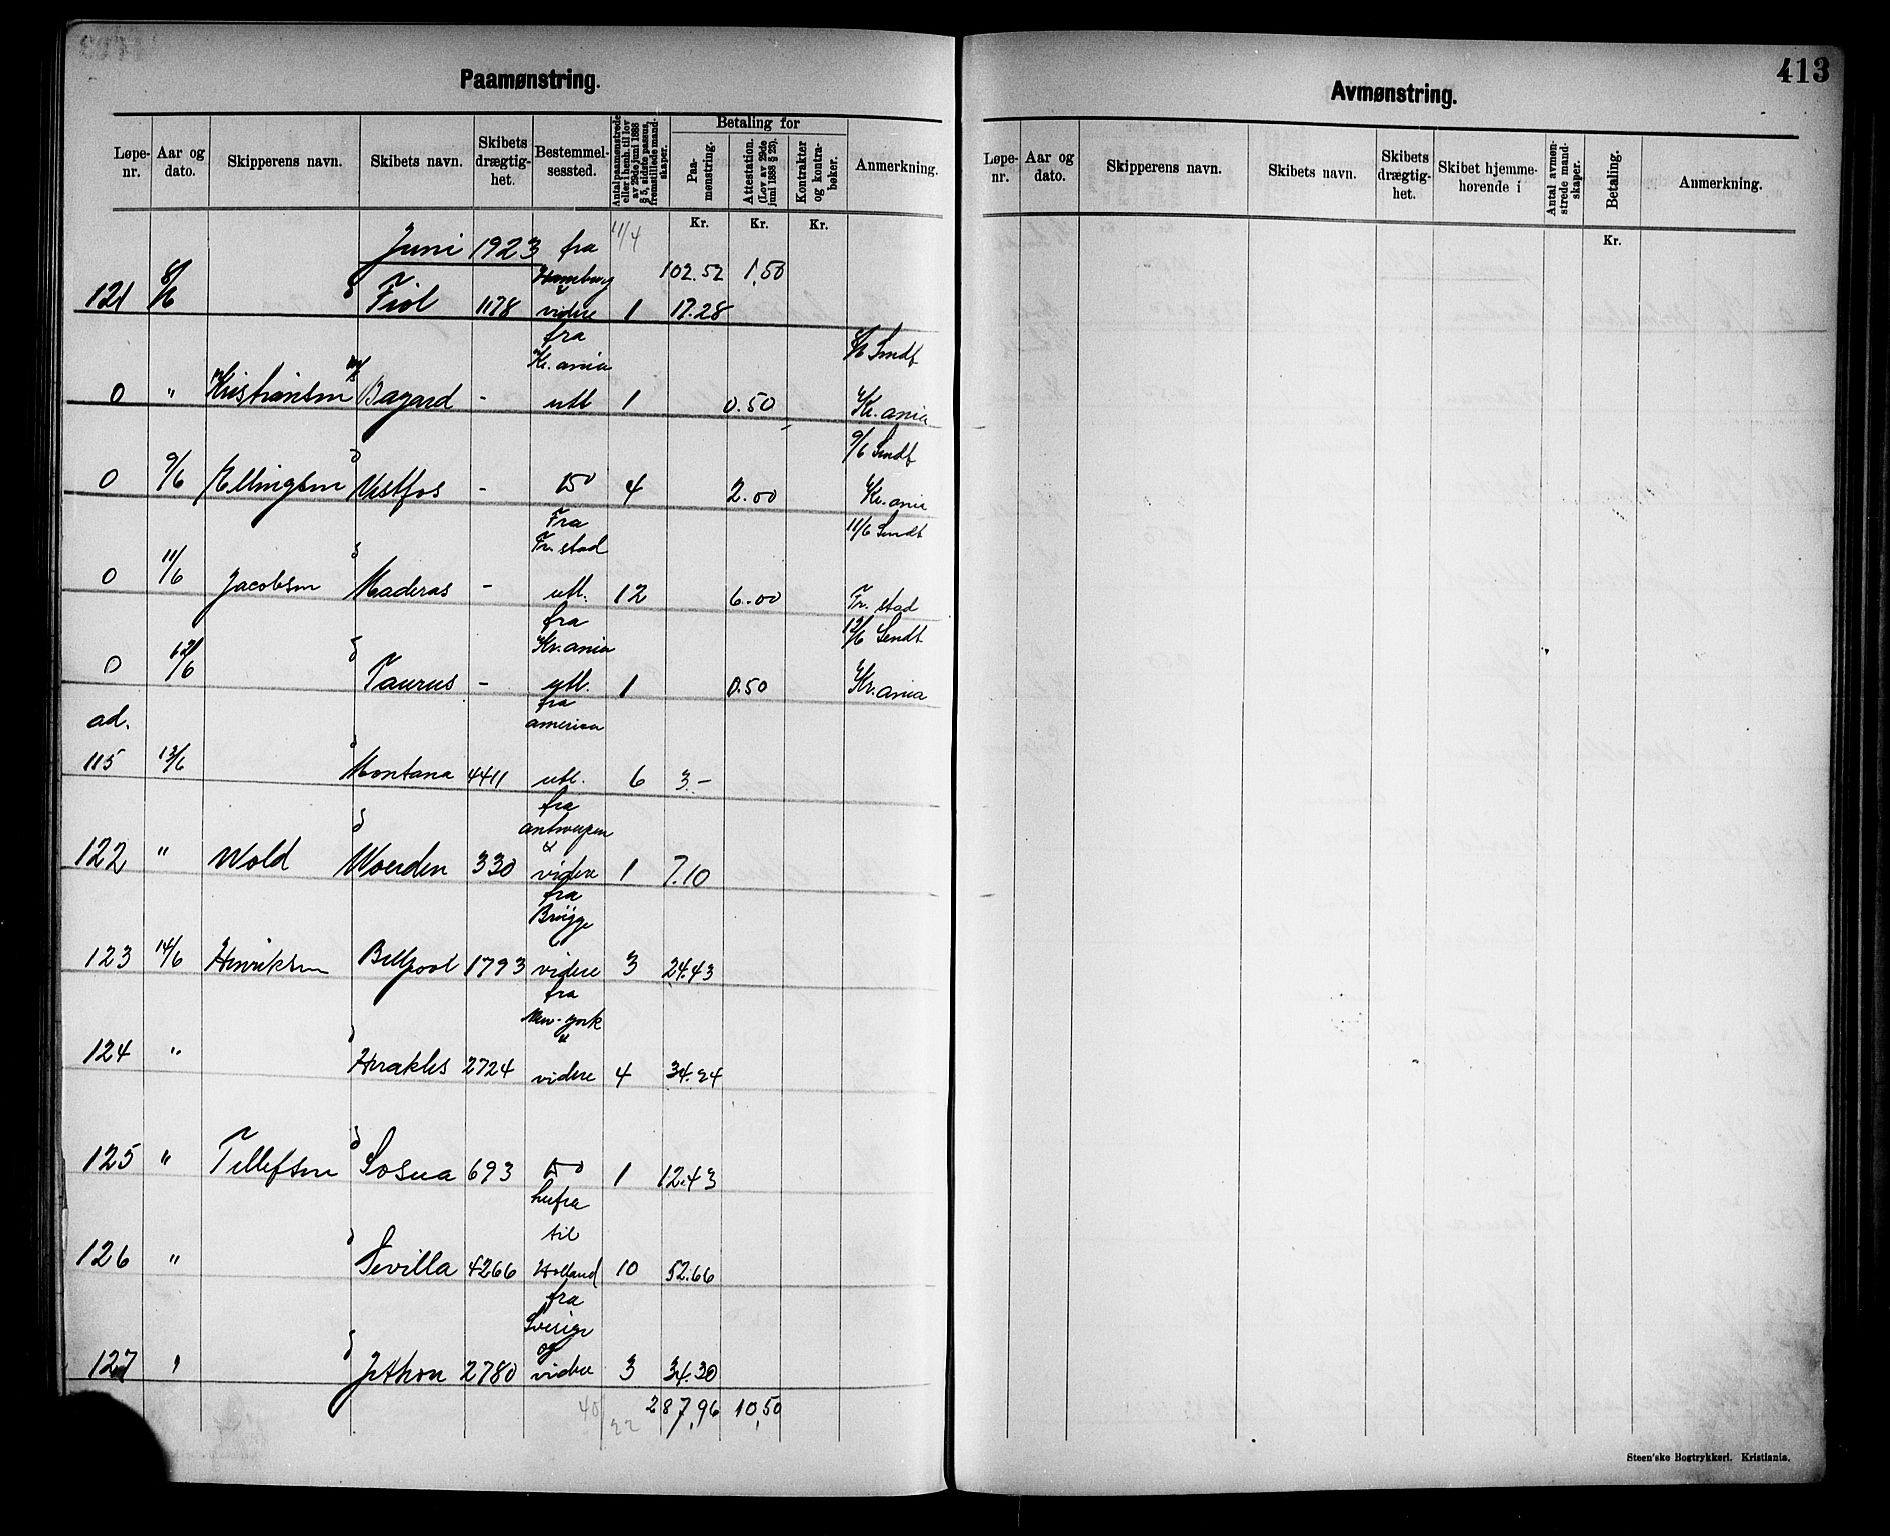 413
Paamønstring.
Løpe-nr. Aar og dato. Skipperens navn. Skibets navn. Skibets drægtig-het. Bestemmel-sessted. Antal paamønstrede eller i henh. til lov av 29de juni 1888 § 5, sidste passus, fremstillede mand-skaper. Betaling for Paa-mønstring. Attestation. (Lov av 29de juni 1888 § 23). Kontrakter og kontra-bøker. Anmerkning.
Kr. Kr. Kr.
Juni 1923 fra 11/4
Hamburg 102.52 1,50
121 8/6 Fiol 1178 videre 1 17.28
fra
Kr.ania 8/6 Sendt
0 " Kristiansen Bayard - utl 1 0.50 Kr.ania
9/6 Sendt
0 9/6 Ellingsen Vestfos - do 4 2.00 Kr.ania
Fra 11/6 Sendt
Fr.stad
0 11/6 Jacobsen Maderas - utl. 12 6.00 Fr.stad
fra 12/6 Sendt
Kr.ania
0 12/6 Taurus - utl. 1 0.50 Kr.ania
ad. fra
america
115 13/6 Montana 4411 utl. 6 3.-
fra
antwerpen
122 " Wold Woerden 330 videre 1 7.10
fra
Brügge
123 14/6 Henriksen Bellpool 1793 videre 3 24.43
fra
New-york
124 " Herakles 2724 videre 4 34.24
125 " Tellefsen Sosua 693 do 1 12.43
herfra
til
126 " Sevilla 4266 Holland 10 52.66
fra
Sverige
og
127 " Jethon 2780 videre 3 34.30
40/22 287,96 10,50
Avmønstring.
Løpe-nr. Aar og dato. Skipperens navn. Skibets navn. Skibets drægtig-het. Skibet hjemme-hørende i Antal avmøn-strede mand-skaper. Betaling. Anmerkning.
Kr.
Steen'ske Bogtrykkeri. Kristiania.